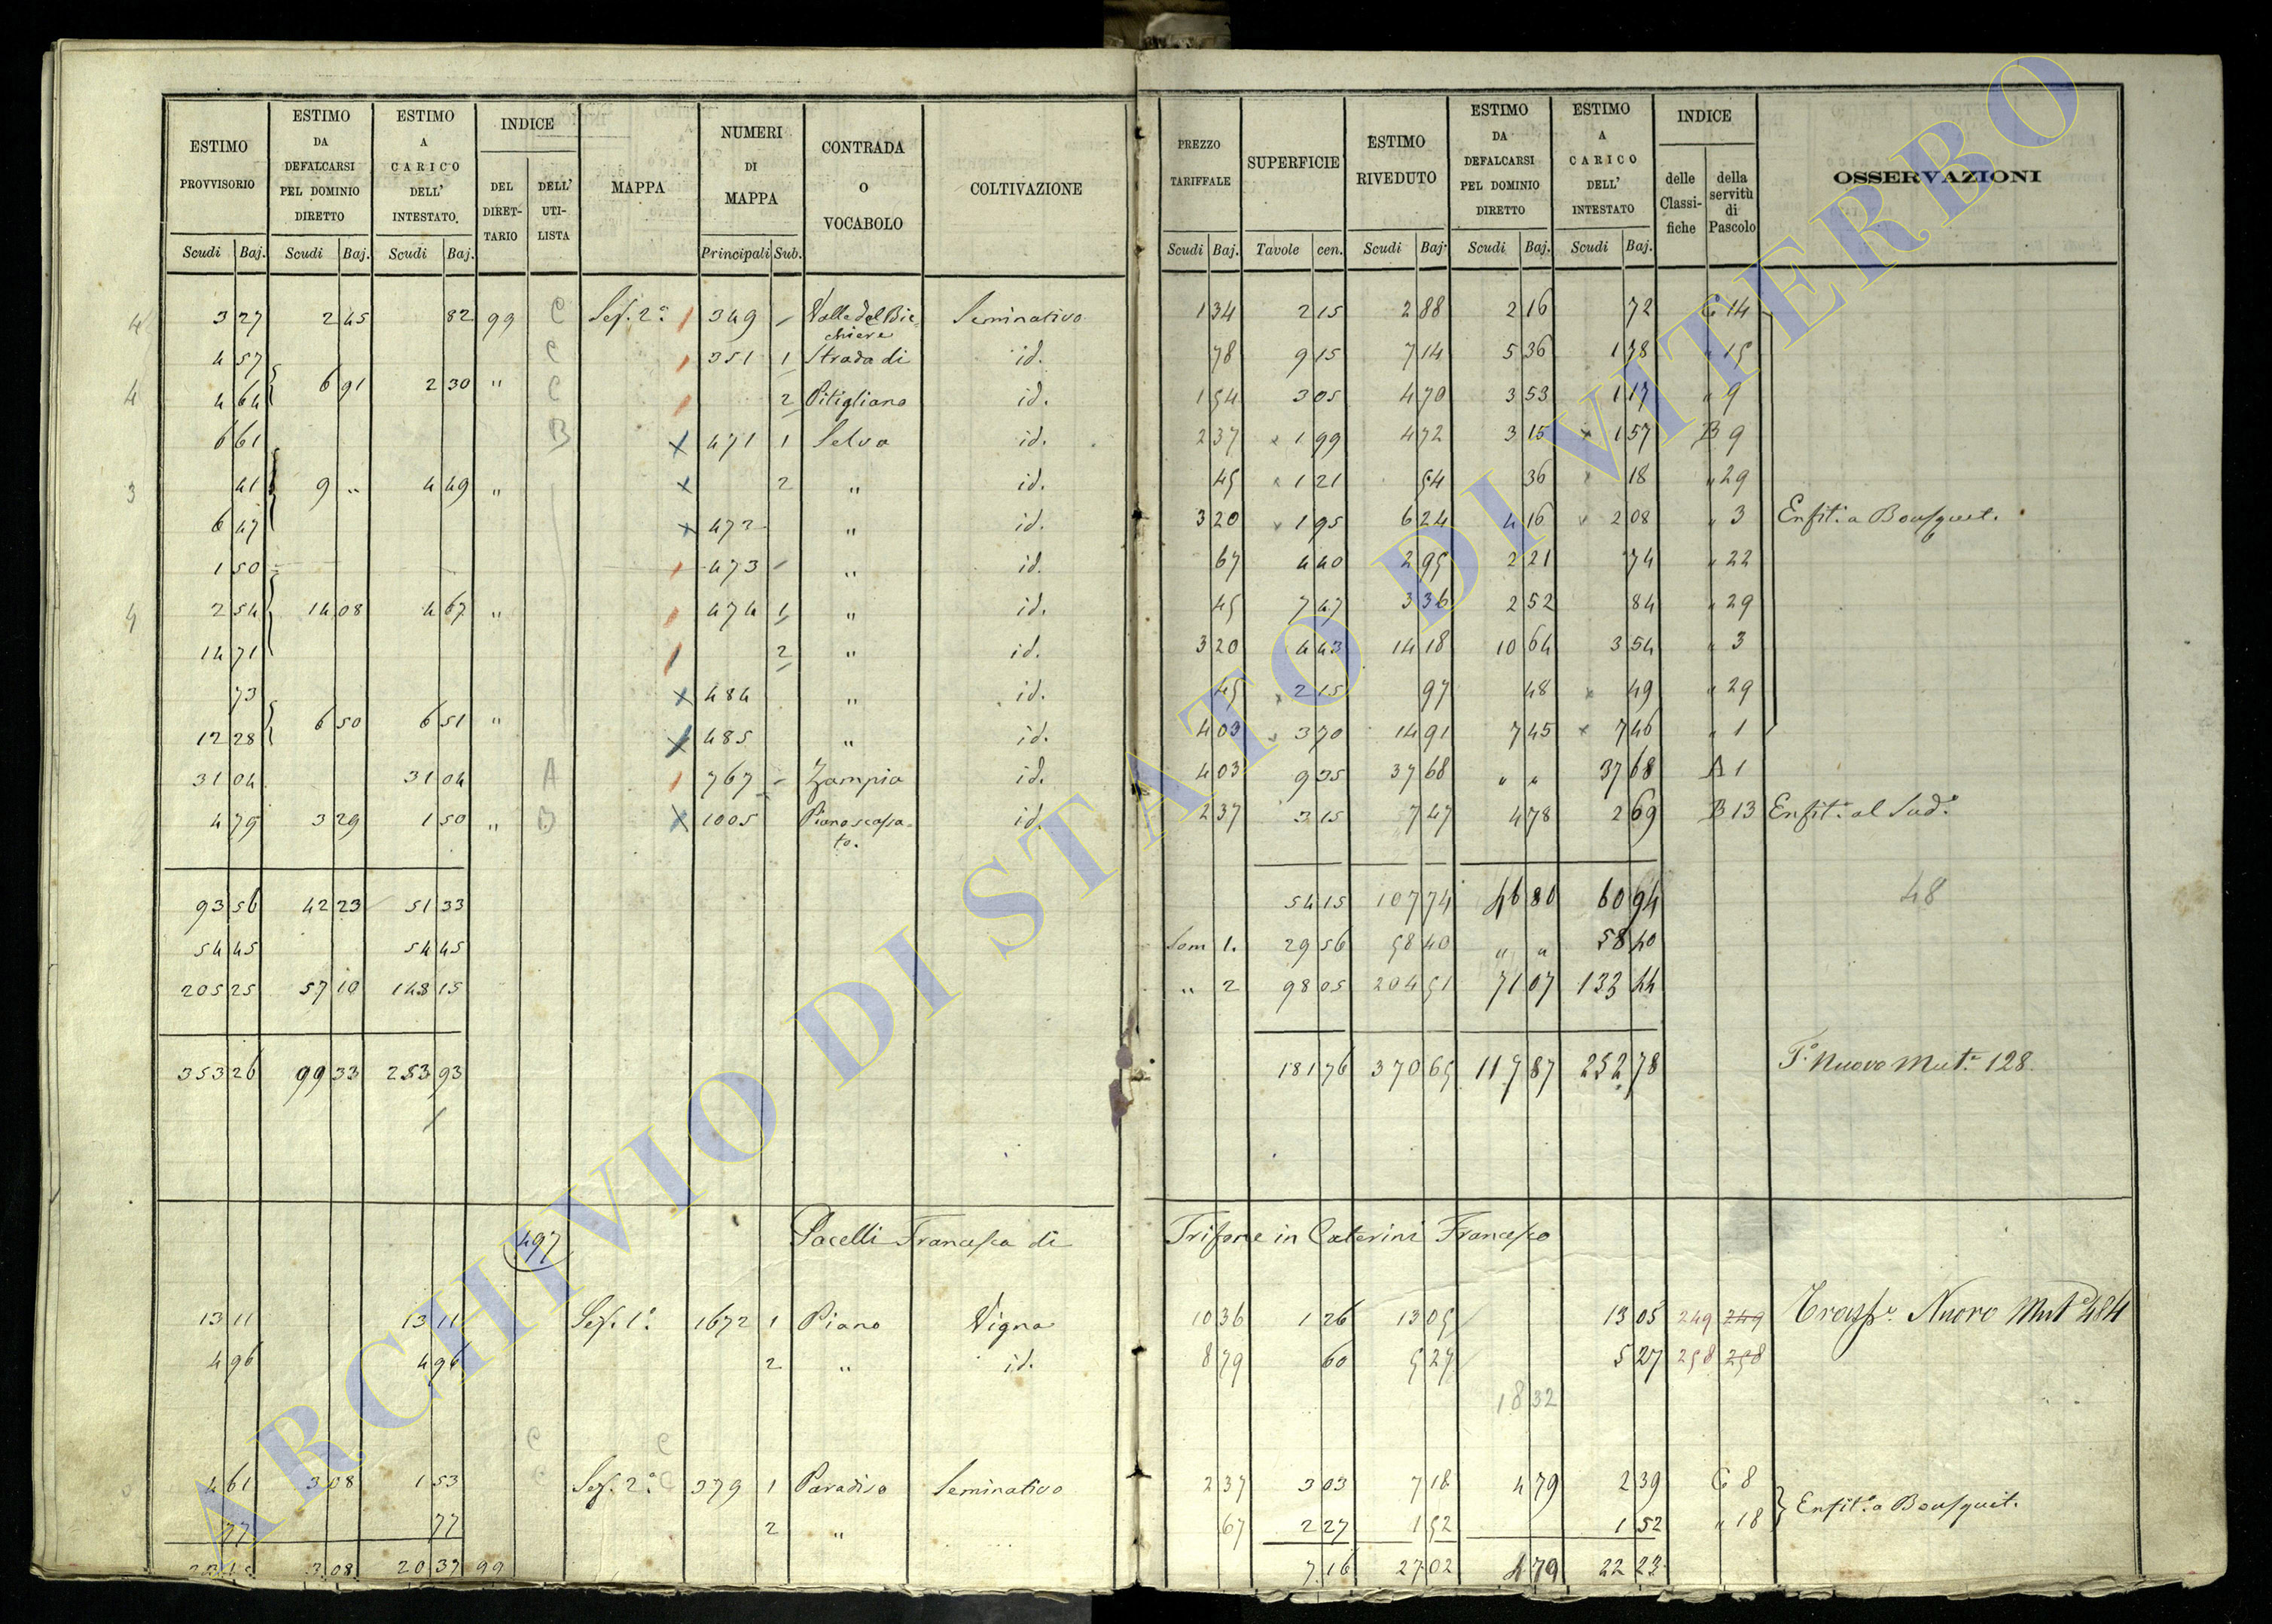 ESTIMO PROVVISORIO | ESTIMO DA DEFALCARSI PEL DOMINIO DIRETTO | ESTIMO A CARICO DELL' INTESTATO. | INDICE DEL DIRETTARIO | DELL' UTILISTA | MAPPA | NUMERI DI MAPPA | CONTRADA O VOCABOLO | COLTIVAZIONE | PREZZO TARIFFALE | SUPERFICIE | ESTIMO RIVEDUTO | ESTIMO DA DEFALCARSI PEL DOMINIO DIRETTO | ESTIMO A CARICO DELL' INTESTATO | INDICE delle Classifiche | della servitù di Pascolo | OSSERVAZIONI
Scudi Baj. | Scudi Baj. | Scudi Baj. | Principali Sub. | Scudi Baj. | Tavole cen. | Scudi Baj. | Scudi Baj. | Scudi Baj.
4 | 3 27 | 2 45 | 82 | 99 | C | Sez. 2a | 349 | Valle del Bicchiere | Seminativo | 1 34 | 2 15 | 2 88 | 2 16 | 72 | C 14
4 57 | C | 351 1 | Strada di | id. | 78 | 9 15 | 7 14 | 5 36 | 1 78 | " 15
4 | 4 64 | 6 91 | 2 30 | " | C | 2 | Pitigliano | id. | 1 54 | 3 05 | 4 70 | 3 53 | 1 17 | " 9
6 61 | B | x 471 1 | Selva | id. | 2 37 | x 1 99 | 4 72 | 3 15 | x 1 57 | B 9
3 | 41 | 9 " | 4 49 | " | x 2 | " | id. | 45 | x 1 21 | 54 | 36 | x 18 | " 29
6 47 | x 472 | " | id. | 3 20 | x 1 95 | 6 24 | 4 16 | x 2 08 | " 3 | Enfit. a Bousquet.
1 50 | 473 | " | id. | 67 | 4 40 | 2 95 | 2 21 | 74 | " 22
9 | 2 54 | 14 08 | 4 67 | " | 474 1 | " | id. | 45 | 7 47 | 3 36 | 2 52 | 84 | " 29
14 71 | 2 | " | id. | 3 20 | 4 43 | 14 18 | 10 64 | 3 54 | " 3
73 | x 484 | " | id. | 45 | x 2 15 | 97 | 48 | x 49 | " 29
12 28 | 6 50 | 6 51 | " | x 485 | " | id. | 4 03 | x 3 70 | 14 91 | 7 45 | x 7 46 | " 1
31 04 | 31 04 | A | 767 | Zampia | id. | 4 03 | 9 35 | 37 68 | " " | 37 68 | A 1
4 79 | 3 29 | 1 50 | " | B | x 1005 | Piano scassato. | id. | 2 37 | 3 15 | 7 47 | 4 78 | 2 69 | B 13 | Enfit. al Sud.o
93 56 | 42 23 | 51 33 | 54 15 | 107 74 | 46 80 | 60 94 | 48
54 45 | 54 45 | Som 1. | 29 56 | 58 40 | " " | 58 40
205 25 | 57 10 | 148 15 | " 2 | 98 05 | 204 51 | 71 07 | 133 44
353 26 | 99 33 | 253 93 | 181 76 | 370 65 | 117 87 | 252 78 | T. Nuovo Mut. 128.
497 | Pacelli Francesca di Trifone in Caterini Francesco
13 11 | 13 11 | Sez. 1a | 1672 1 | Piano | Vigna | 10 36 | 1 26 | 13 05 | 13 05 | 249 249 | Trasp. Nuovo Mut. 484
4 96 | 4 96 | 2 | " | id. | 8 79 | 60 | 5 27 | 5 27 | 258 258
18 32
C C
4 61 | 3 08 | 1 53 | C | Sez. 2a C | 379 1 | Paradiso | Seminativo | 2 37 | 3 03 | 7 18 | 4 79 | 2 39 | C 8 | Enfit. a Bousquet.
77 | 77 | 2 | " | 67 | 2 27 | 1 52 | 1 52 | " 18
3 08 | 20 37 | 99 | 7 16 | 27 02 | 4 79 | 22 23
ARCHIVIO DI STATO DI VITERBO